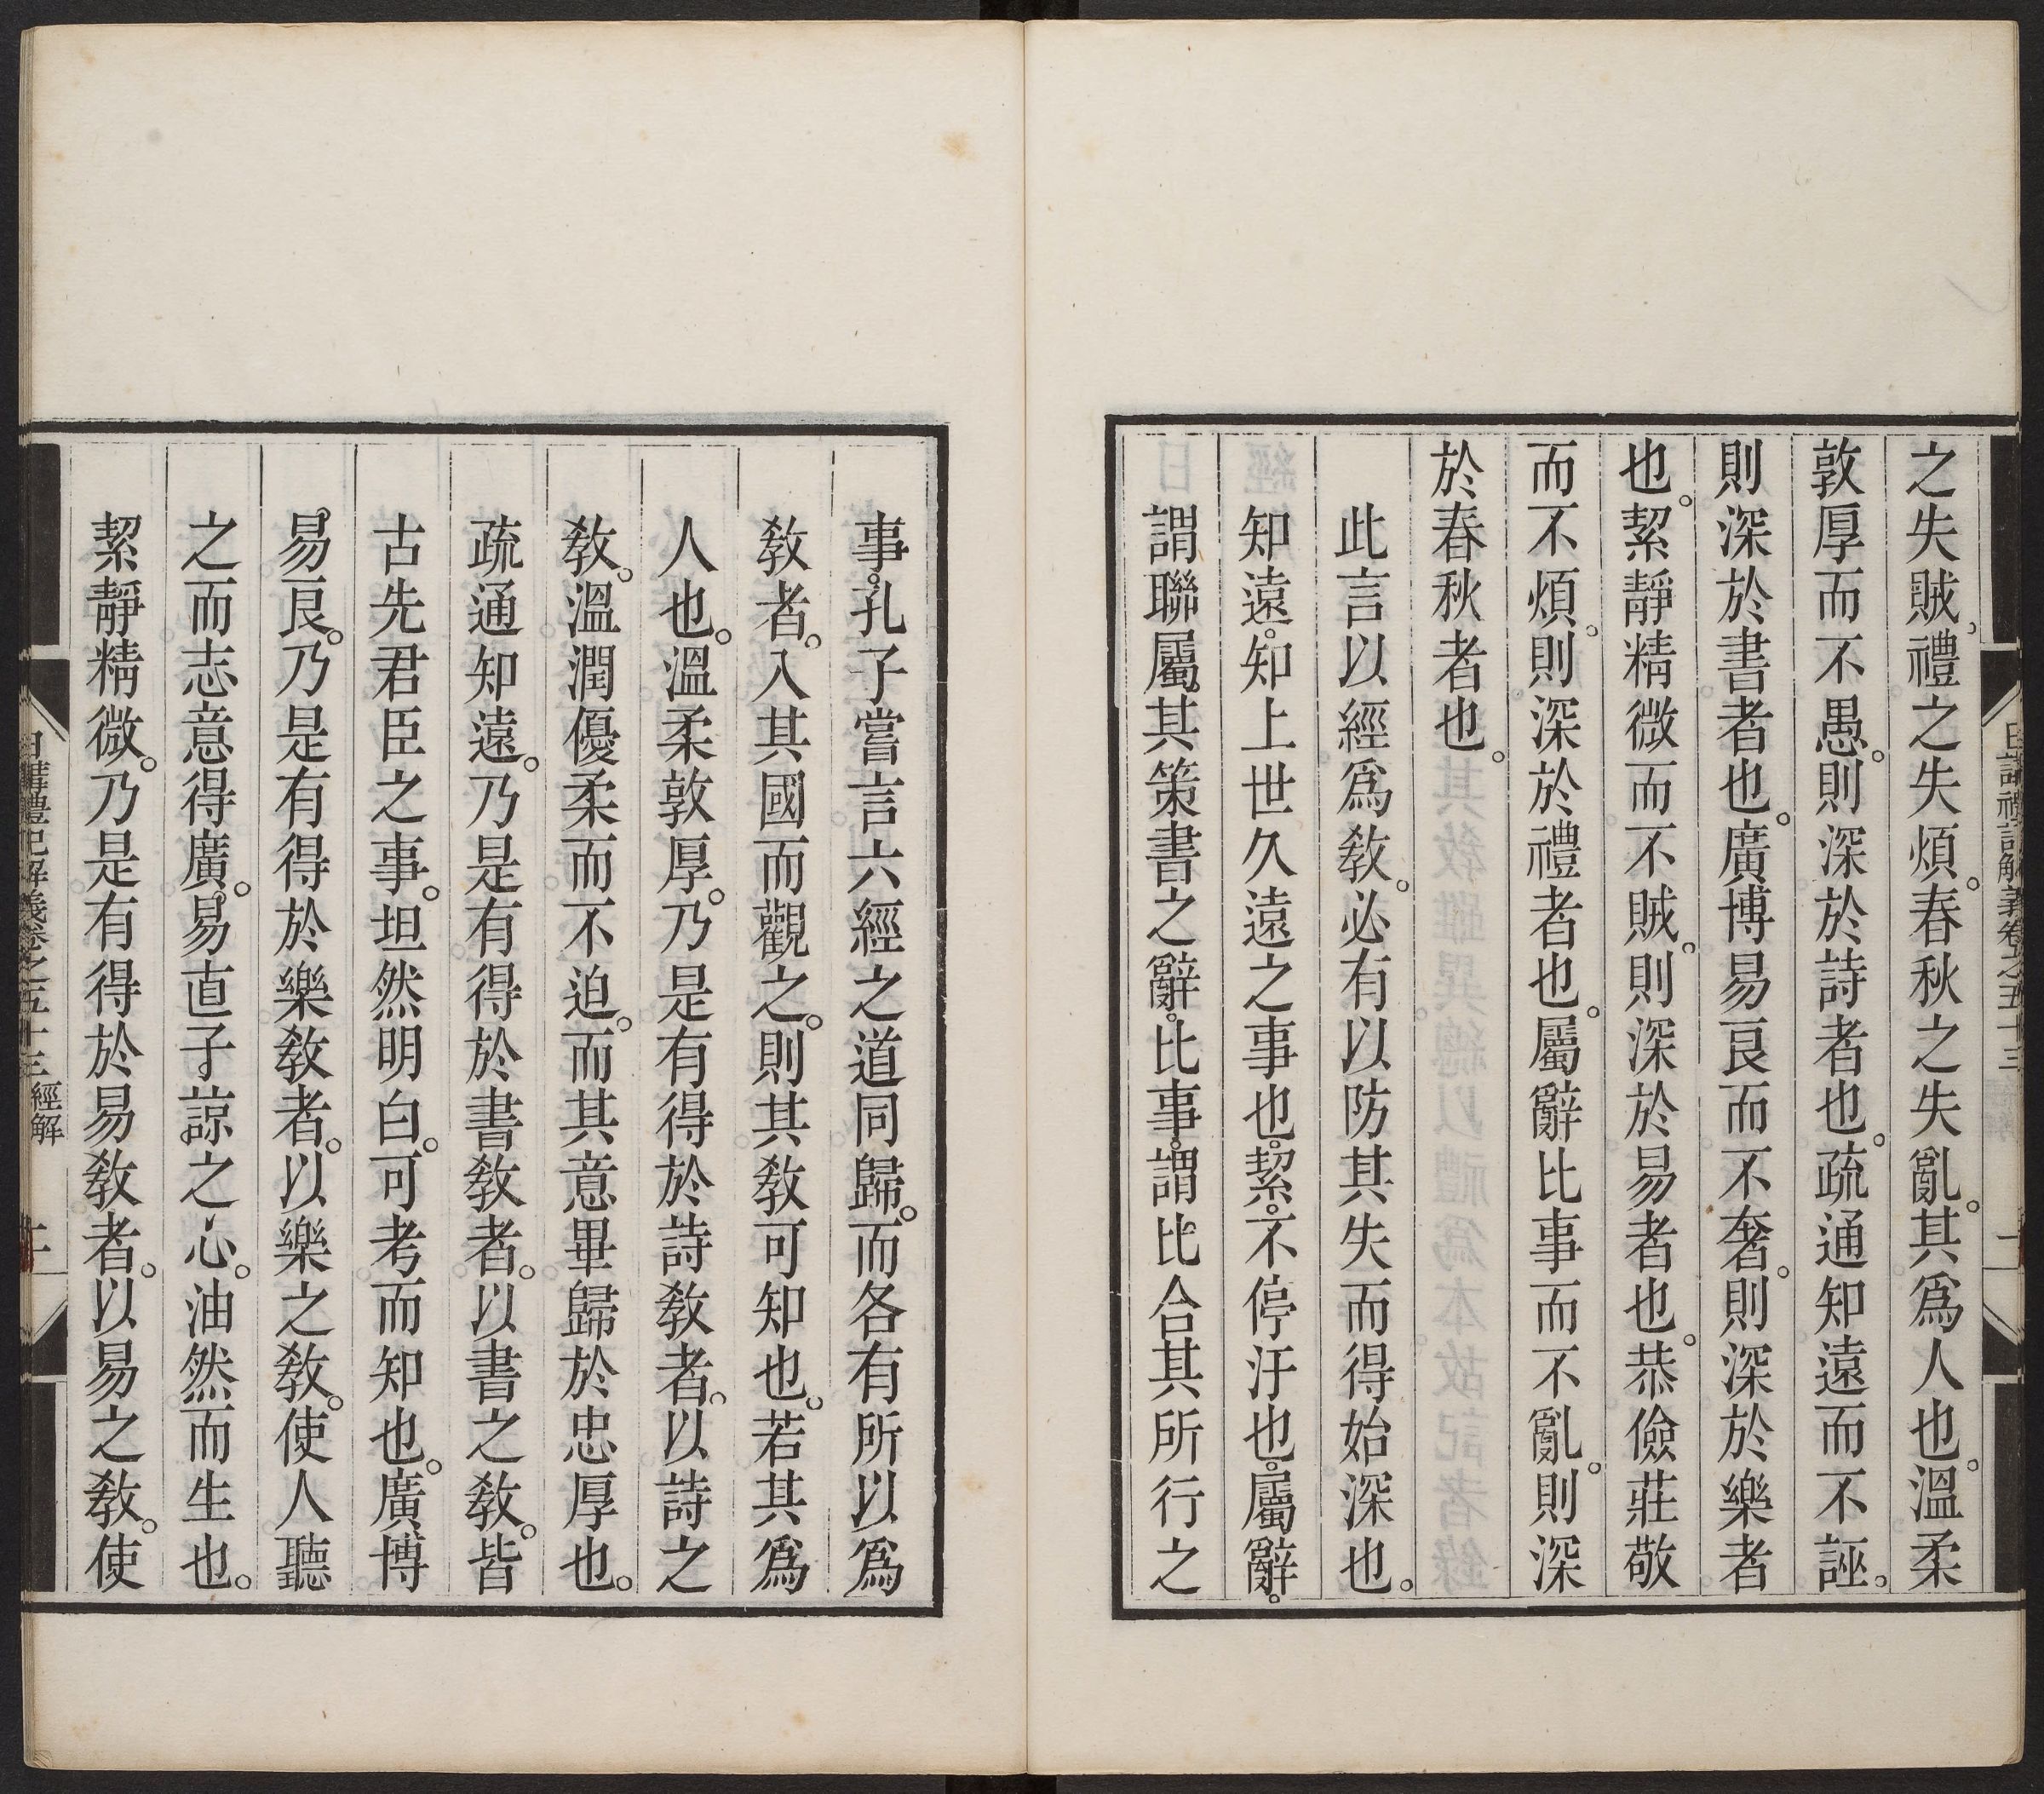 之失賊。禮之失煩。春秋之失亂。其爲人也。溫柔
敦厚而不愚。則深於詩者也。疏通知遠而不誣。
則深於書者也。廣博易良而不奢。則深於樂者
也。絜靜精微而不賊。則深於易者也。恭儉莊敬
而不煩。則深於禮者也。屬辭比事而不亂。則深
於春秋者也。
此言以經爲教。必有以防其失而得始深也。
知遠。知上世久遠之事也。絜。不停汙也。屬辭。
謂聯屬。其策書之辭。比事。謂比合其所行之
事。孔子嘗言六經之道同歸。而各有所以爲
教者。入其國而觀之。則其教可知也。若其爲
人也。溫柔敦厚。乃是有得於詩教者。以詩之
教。溫潤優柔而不迫。而其意畢歸於忠厚也。
疏通知遠。乃是有得於書教者。以書之教。皆
古先君臣之事。坦然明白。可考而知也。廣博
易良。乃是有得於樂教者。以樂之教。使人聽
之而志意得廣。易直子諒之心。油然而生也。
絜靜精微。乃是有得於易教者。以易之教。使
日講禮記解義卷之五十三 經解